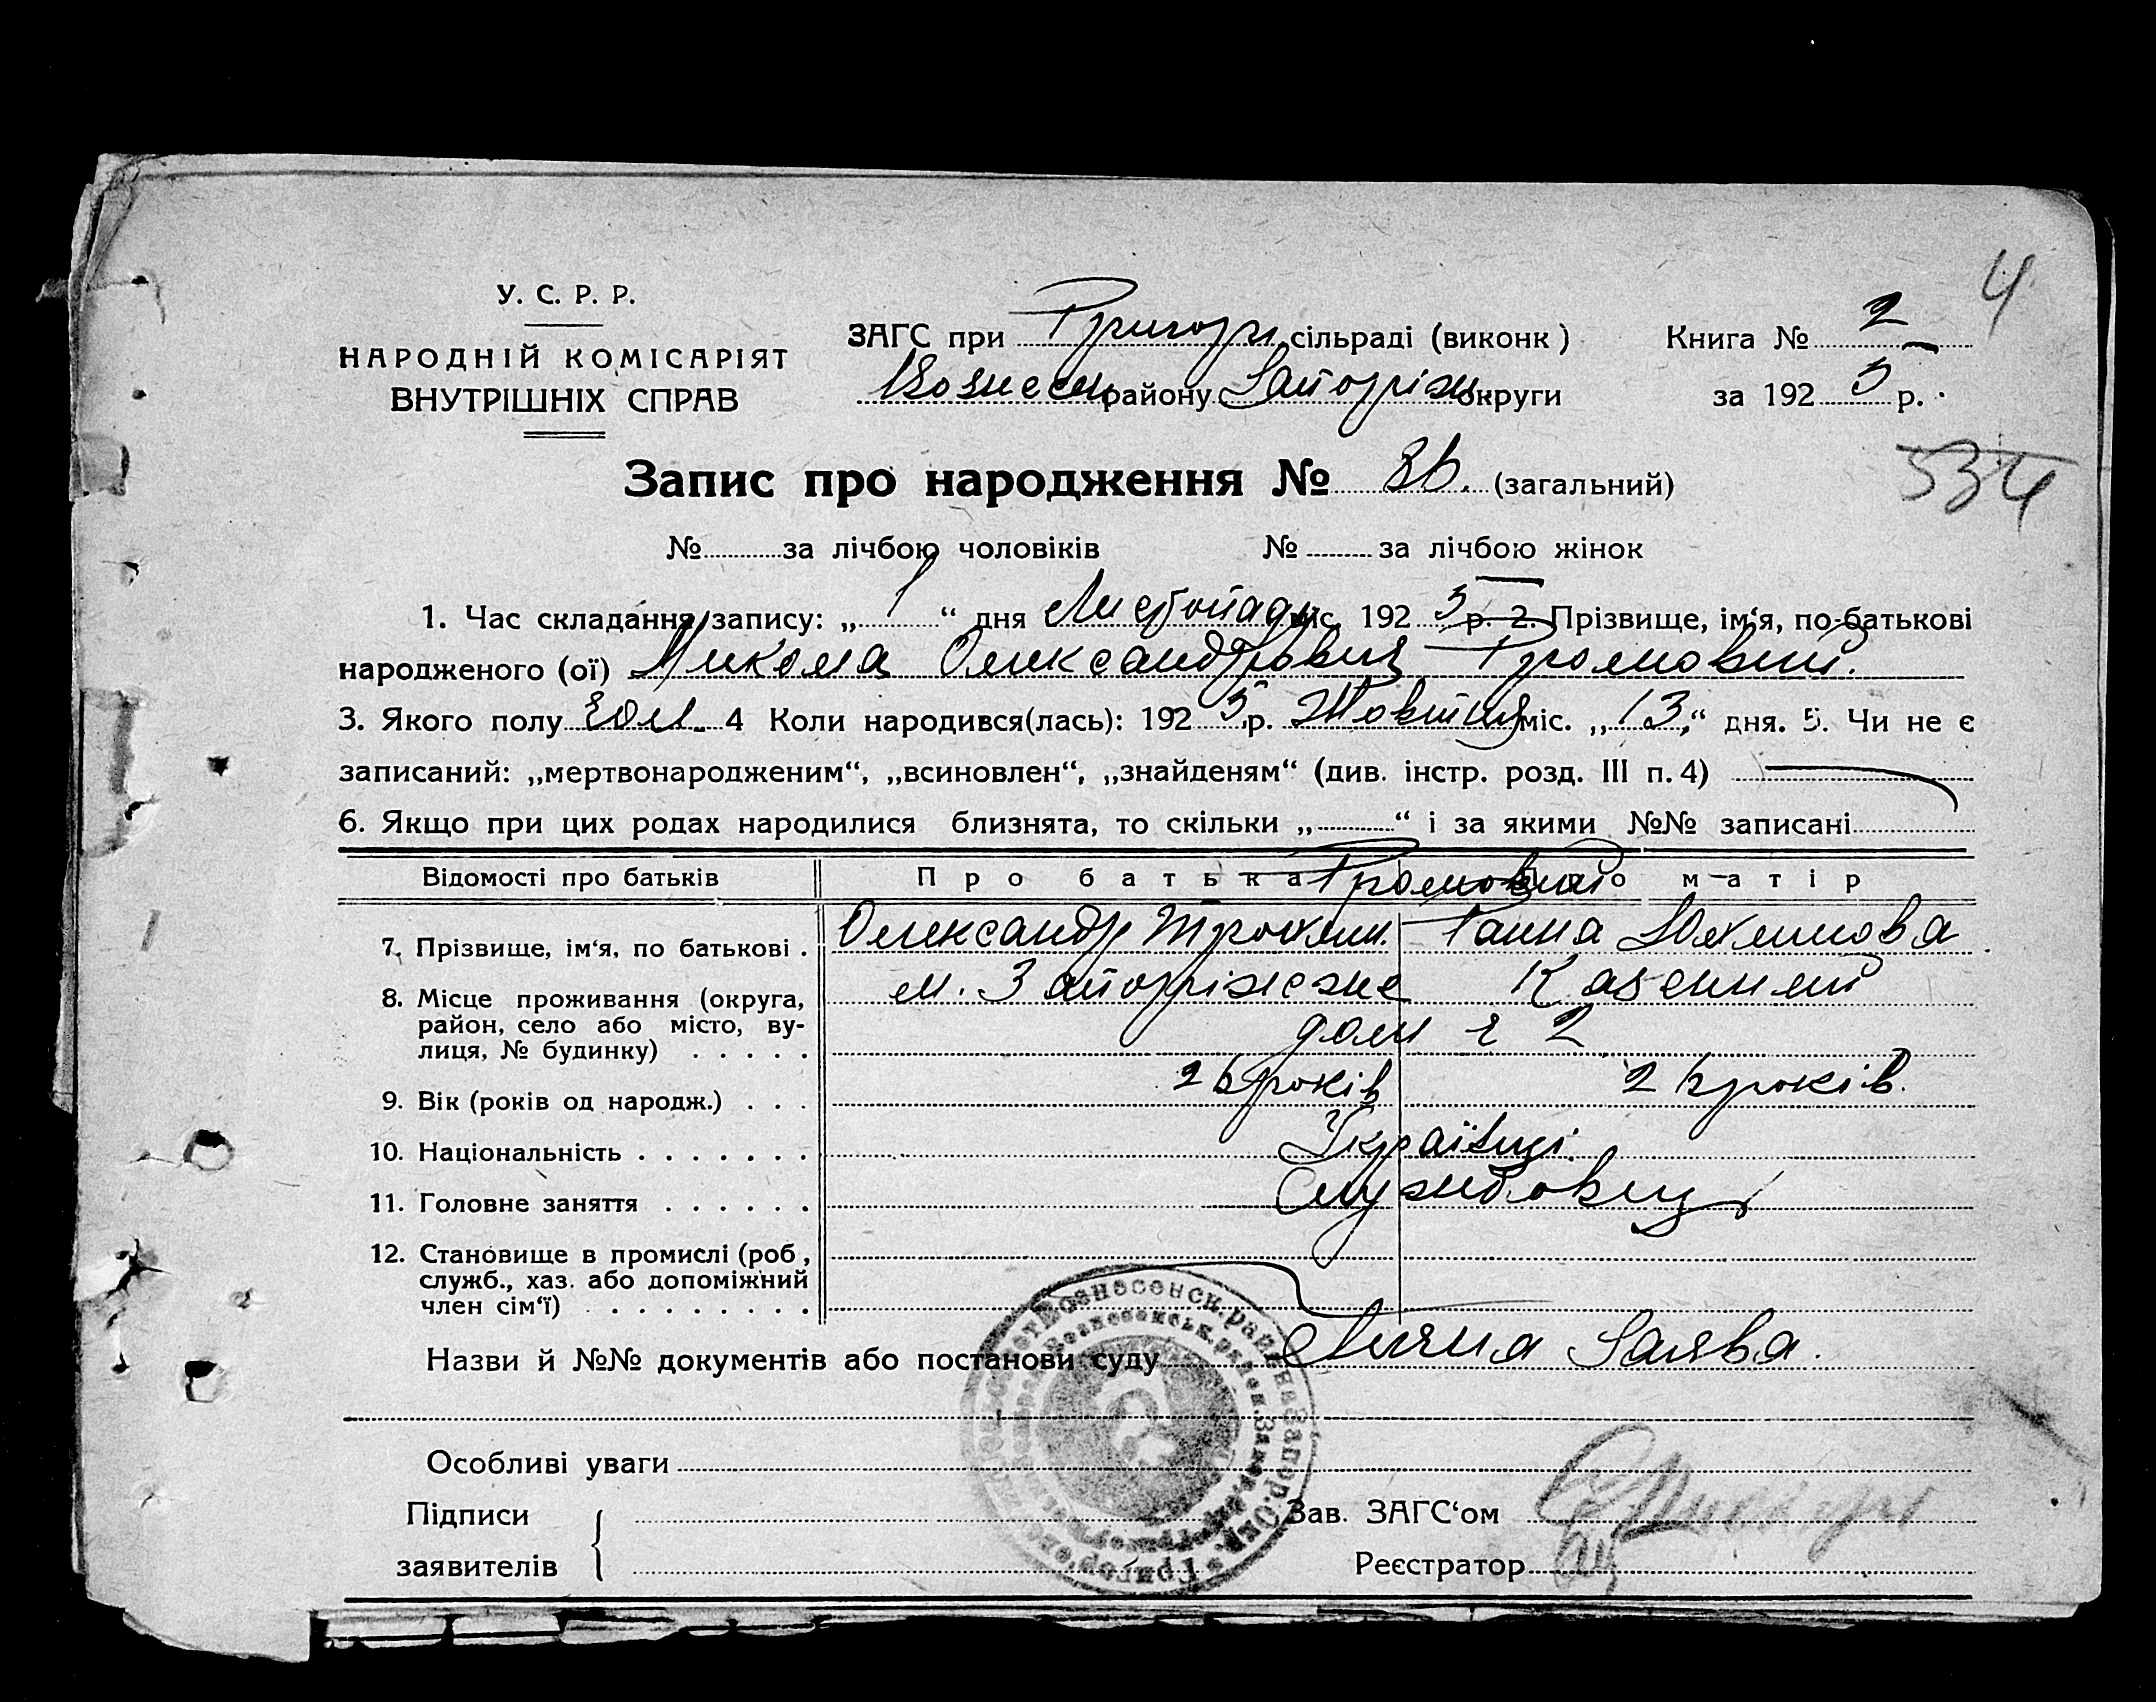 4
У. С. Р. Р.
НАРОДНІЙ КОМІСАРІЯТ
ВНУТРІШНІХ СПРАВ
ЗАГС при Григорі. сільраді (виконк)
Вознесен. району Запоріж. округи
Книга № 2
за 1925 р.
534
Запис про народження № 36. (загальний)
№ за лічбою чоловіків № за лічбою жінок
1. Час складання запису: „ 1 “ дня Листопада міс. 1925 р. 2. Прізвище, ім‘я, по-батькові
народженого (ої) Микола Олександрович Громовий.
3. Якого полу чол. 4 Коли народився(лась): 1925 р. Жовтня міс. „ 13 “ дня. 5. Чи не є
записаний: „мертвонародженим“, „всиновлен“, „знайденям“ (див. інстр. розд. III п. 4)
6. Якщо при цих родах народилися близнята, то скільки „ “ і за якими №№ записані
Відомості про батьків Про батька Про матір
Громові
7. Прізвище, ім‘я, по батькові . Олександр Трохим. Ганна Юхимова
8. Місце проживання (округа, район, село або місто, вулиця, № будинку) . . . . . м. Запоріжже Казенний
дом 2
9. Вік (років од народж.) . . . 26 років 26 років.
10. Національність . . . . . . . Українці.
11. Головне заняття . . . . . . Службовці
12. Становище в промислі (роб, служб., хаз. або допоміжний член сім‘ї) . . . . . . . . .
Назви й №№ документів або постанови суду Лична Заява.
Особливі уваги
Підписи
заявителів
Зав. ЗАГС‘ом
Реєстратор